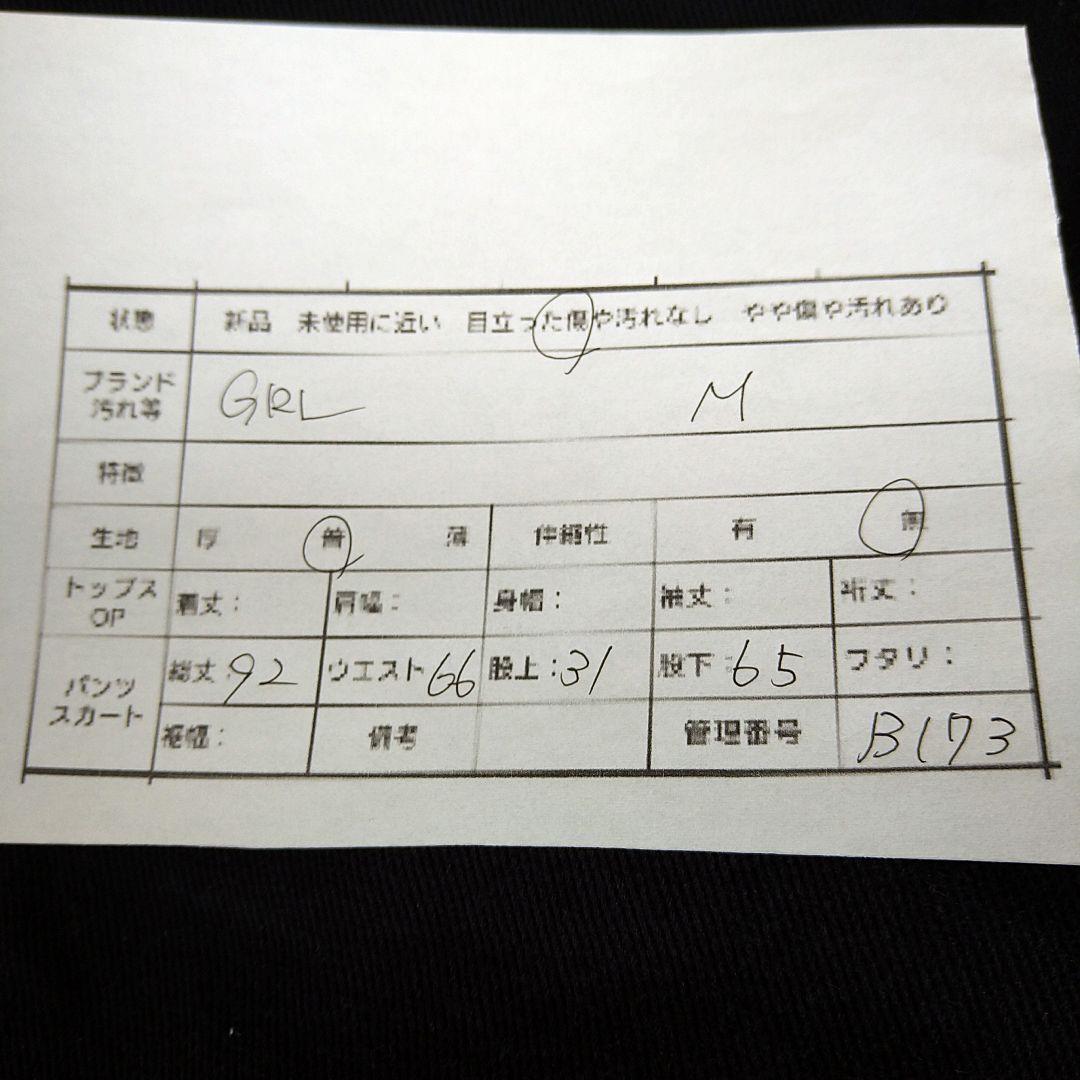 状態 新品 未使用に近い 目立った傷や汚れなし やや傷や汚れあり
ブランド GRL M
汚れ等
特徴
生地 厚 普 薄 伸縮性 有 無
トップス 着丈: 肩幅: 身幅: 袖丈: 裄丈:
OP
パンツ 総丈:92 ウエスト66 股上:31 股下:65 ワタリ:
スカート 裾幅: 備考 管理番号 B173